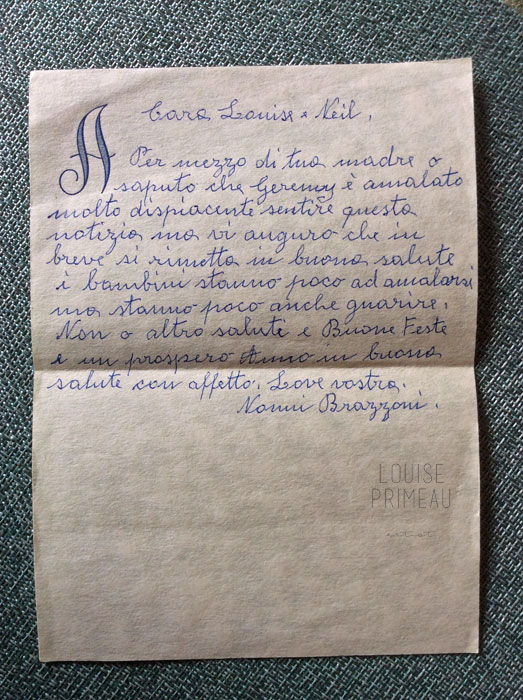 A
Cara Louise e Neil,
Per mezzo di tua madre o
saputo che Geremy è amalato
molto dispiacente sentire questa
notizia ma vi auguro che in
breve si rimetta in buona salute
i bambini stanno poco ad amalarsi
ma stanno poco anche guarire.
Non o altro salute e Buone Feste
e un prospero Anno in buona
salute con affetto. Love vostra.
Nonni Brazzoni.
LOUISE
PRIMEAU
artist